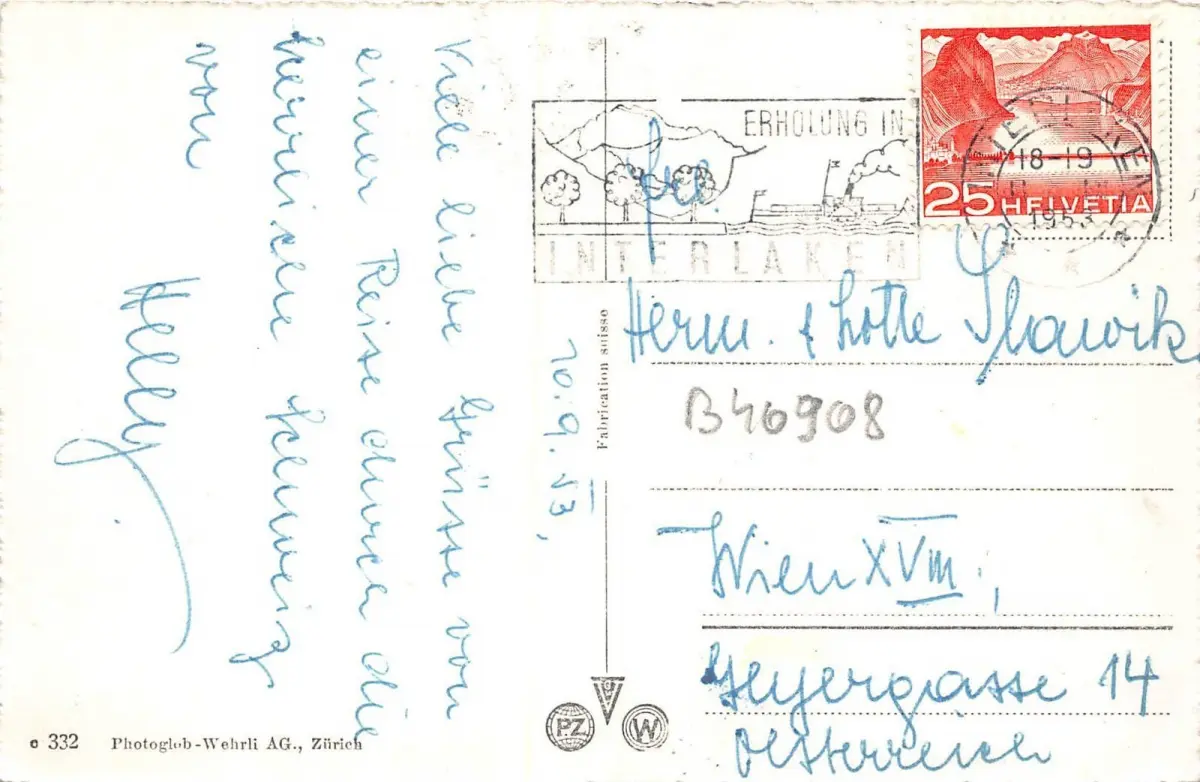 10.9.53,
Viele liebe Grüsse von
einer Reise durch die
herrliche Schweiz
von
Helly
ERHOLUNG IN
INTERLAKEN
INTERLAKEN
18-19
1953
25 HELVETIA
Fam.
Herm. & Lotte Slawik
B46908
Wien XVIII.,
Geyergasse 14
Österreich
Fabrication suisse
PZ
W
332 Photoglob-Wehrli AG., Zürich